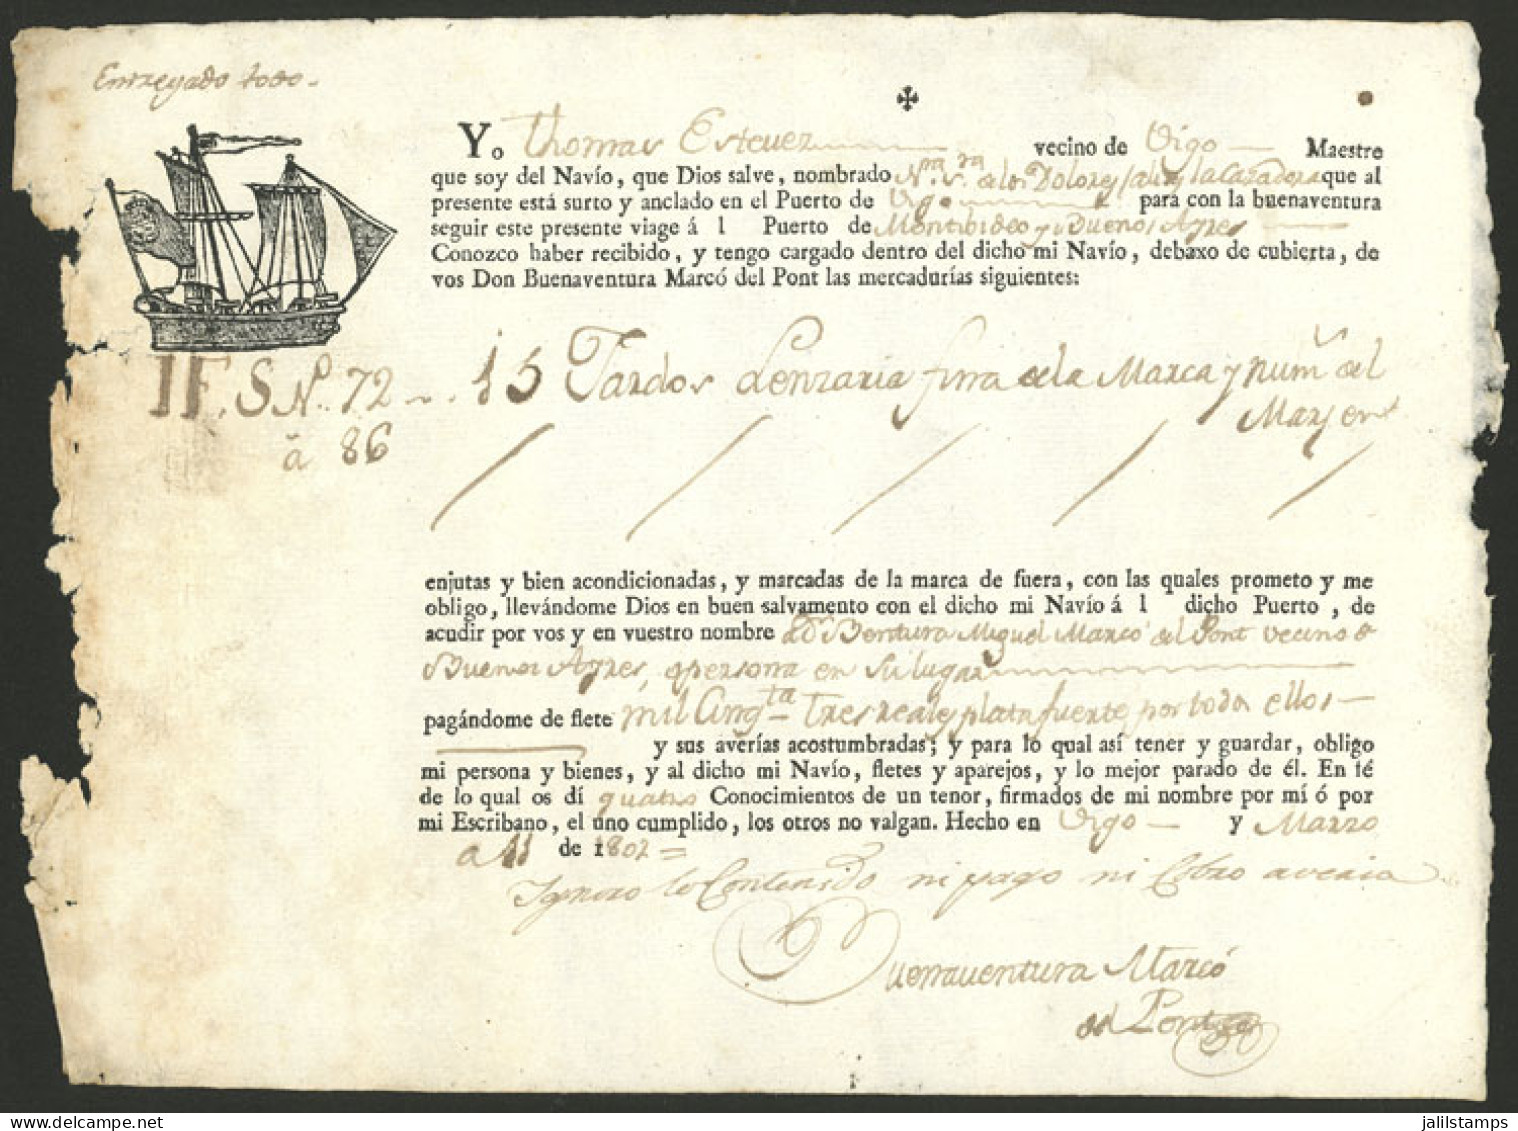 Entregado todo.
✠
Yo Thomas Estevez vecino de Vigo Maestre
que soy del Navío, que Dios salve, nombrado Nra. Sra. de los Dolores (alias) la Cazadora que al
presente está surto y anclado en el Puerto de Vigo para con la buenaventura
seguir este presente viage á l Puerto de Montibideo y Buenos Ayres
Conozco haber recibido, y tengo cargado dentro del dicho mi Navío, debaxo de cubierta, de
vos Don Buenaventura Marcó del Pont las mercadurías siguientes:
IF. S Nº. 72 15 Fardos Lenzaria fina de la Marca y num.º del
á 86 Margen
enjutas y bien acondicionadas, y marcadas de la marca de fuera, con las quales prometo y me
obligo, llevándome Dios en buen salvamento con el dicho mi Navío á l dicho Puerto, de
acudir por vos y en vuestro nombre a Dn. Bentura Miguel Marcó del Pont vecino de
Buenos Ayres, o persona en su lugar
pagándome de flete mil Cinqta. tres reales plata fuerte por todos ellos
y sus averías acostumbradas; y para lo qual así tener y guardar, obligo
mi persona y bienes, y al dicho mi Navío, fletes y aparejos, y lo mejor parado de él. En fé
de lo qual os dí quatro Conocimientos de un tenor, firmados de mi nombre por mí ó por
mi Escribano, el uno cumplido, los otros no valgan. Hecho en Vigo y Marzo
a 11 de 1802
Ignoro lo Contenido ni pago ni Cobro averia
Buenaventura Marcó
del Pont
jalilstamps